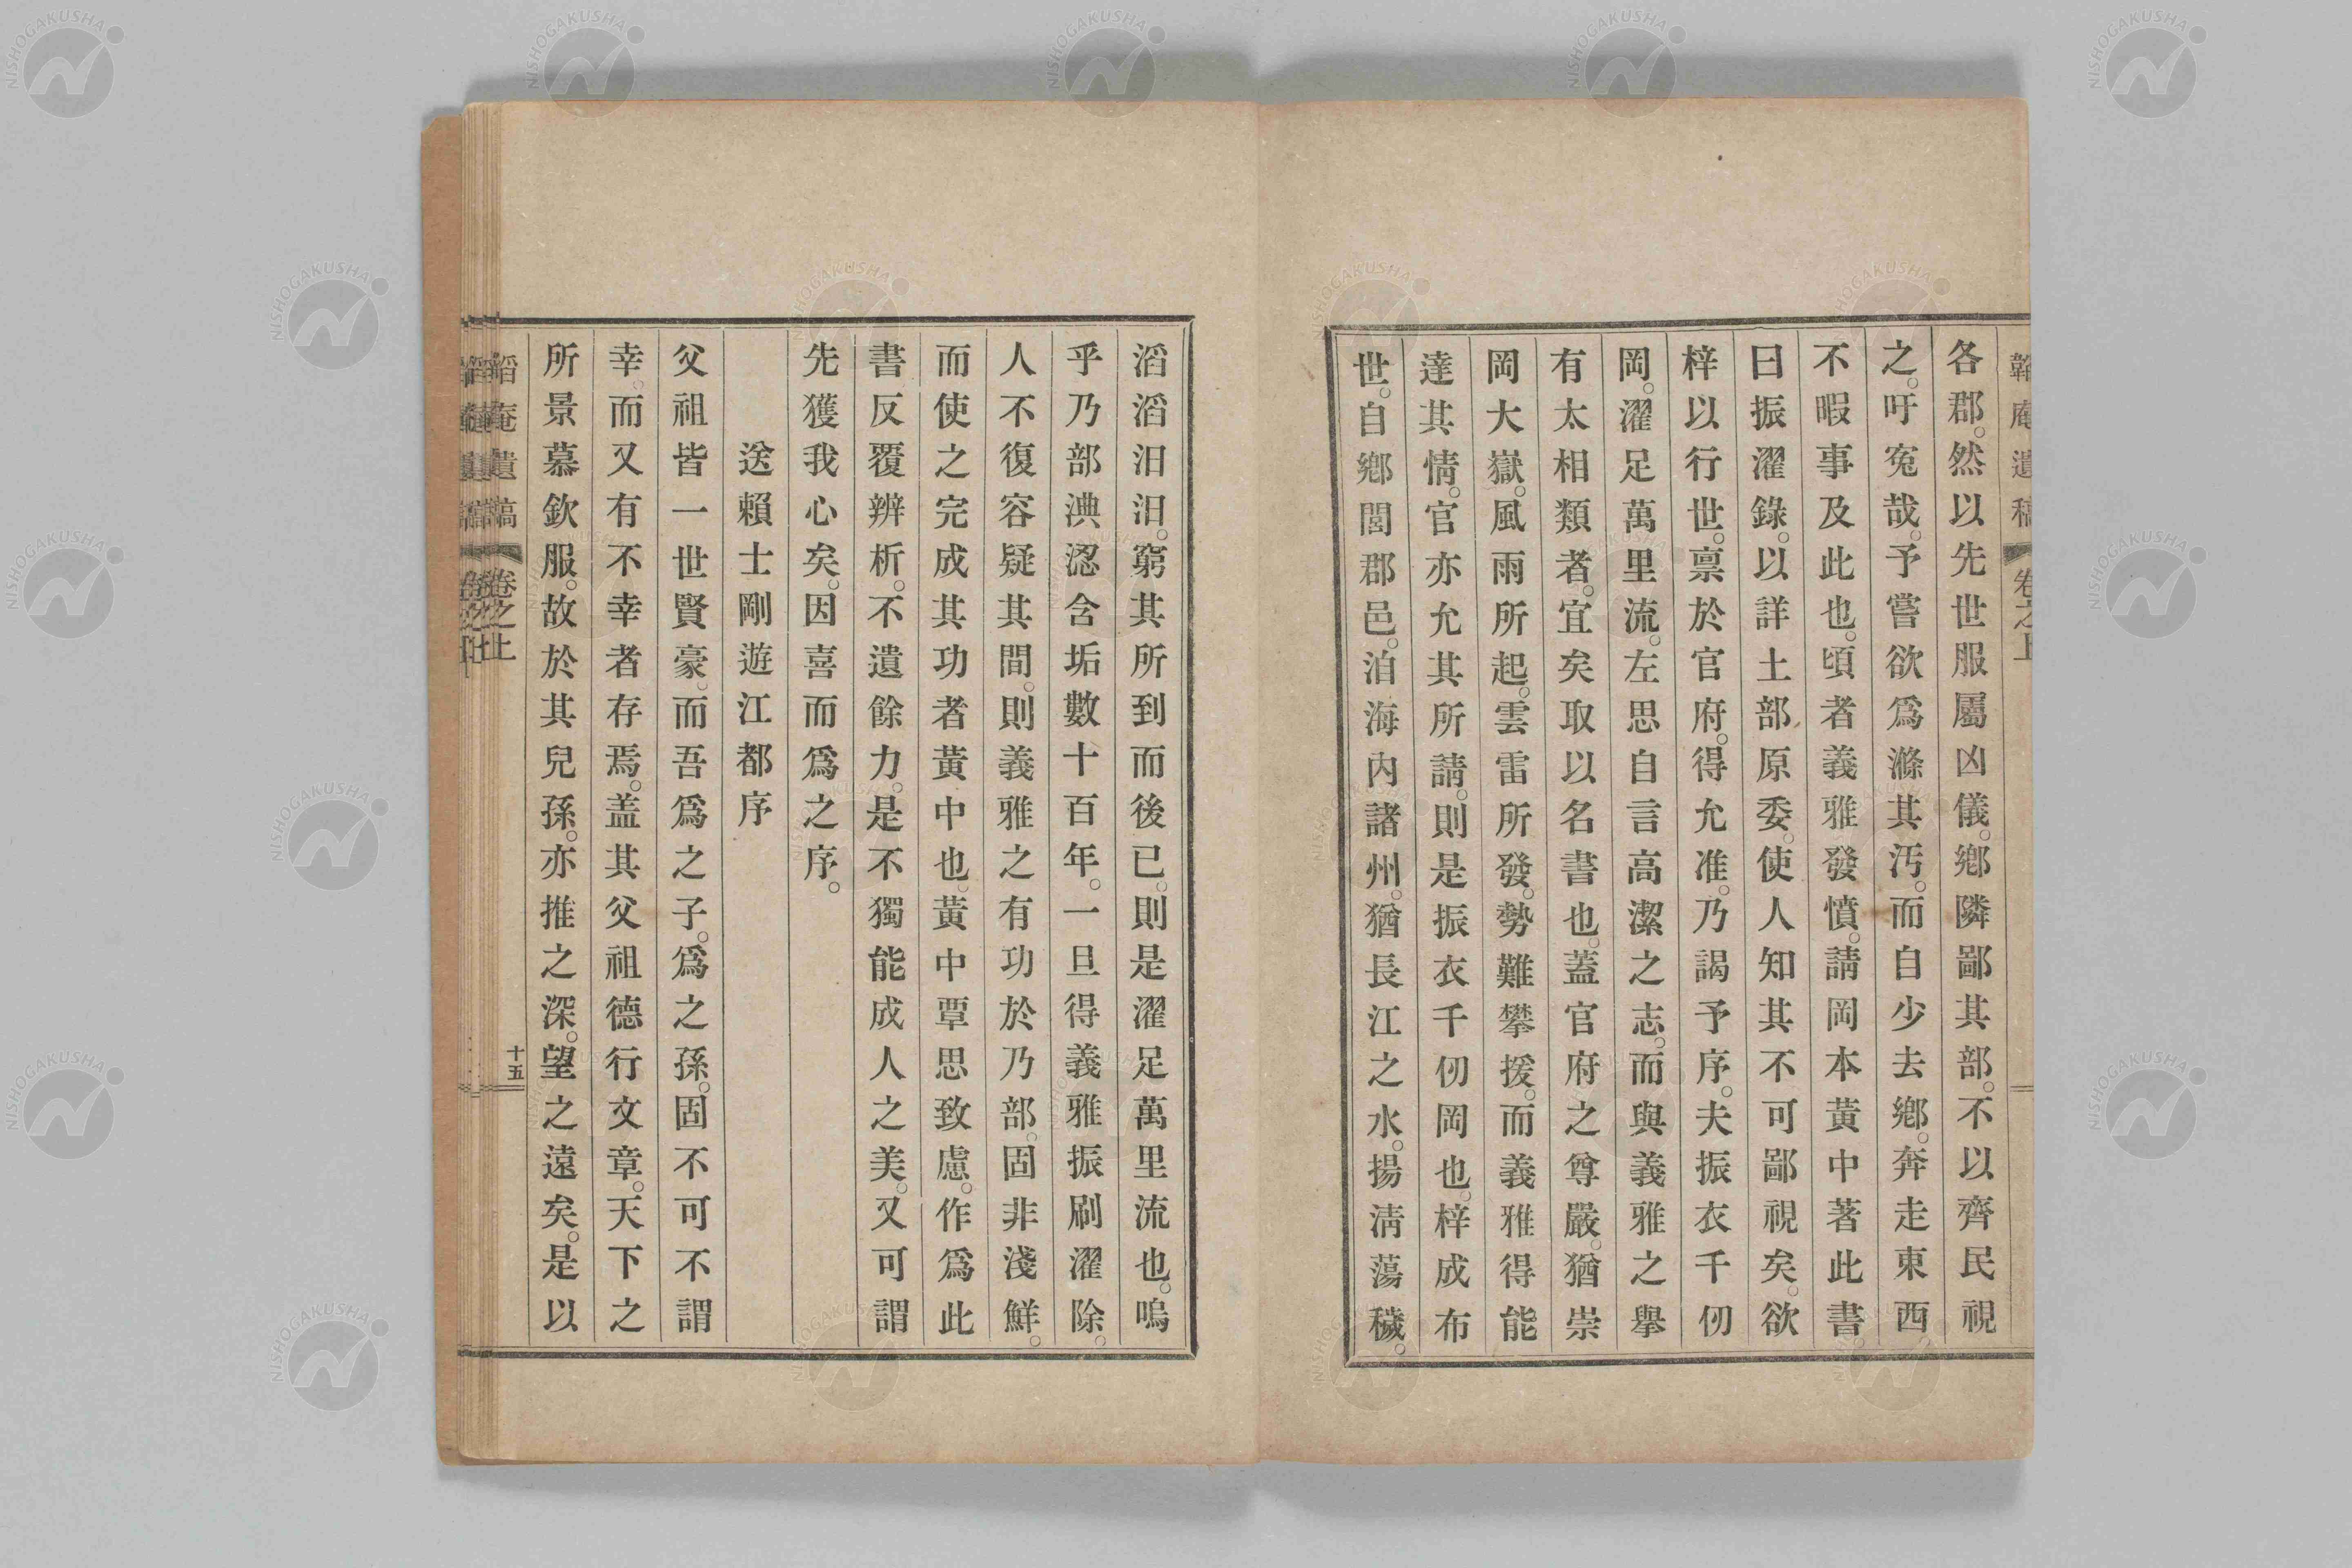 韜庵遺稿 卷之上
各郡。然以先世服屬凶儀。鄉隣鄙其部。不以齊民視
之。吁寃哉。予嘗欲爲滌其汚。而自少去鄉。奔走東西
不暇事及此也。頃者義雅發憤。請岡本黃中著此書
曰振濯錄。以詳土部原委。使人知其不可鄙視矣。欲
梓以行世。禀於官府。得允准。乃謁予序。夫振衣千仞
岡。濯足萬里流。左思自言高潔之志。而與義雅之舉
有太相類者。宜矣取以名書也。蓋官府之尊嚴。猶崇
岡大嶽。風雨所起。雲雷所發。勢難攀援。而義雅得能
達其情。官亦允其所請。則是振衣千仞岡也。梓成布
世。自鄉閭郡邑。洎海內諸州。猶長江之水。揚淸蕩穢。
滔滔汨汨。窮其所到而後已。則是濯足萬里流也。嗚
乎乃部淟涊含垢數十百年。一旦得義雅振刷濯除。
人不復容疑其間。則義雅之有功於乃部。固非淺鮮。
而使之完成其功者黃中也。黃中覃思致慮。作爲此
書反覆辨析。不遺餘力。是不獨能成人之美。又可謂
先獲我心矣。因喜而爲之序。
送賴士剛遊江都序
父祖皆一世賢豪。而吾爲之子。爲之孫。固不可不謂
幸。而又有不幸者存焉。盖其父祖德行文章。天下之
所景慕欽服。故於其兒孫。亦推之深。望之遠矣。是以
韜庵遺稿 卷之上 十五